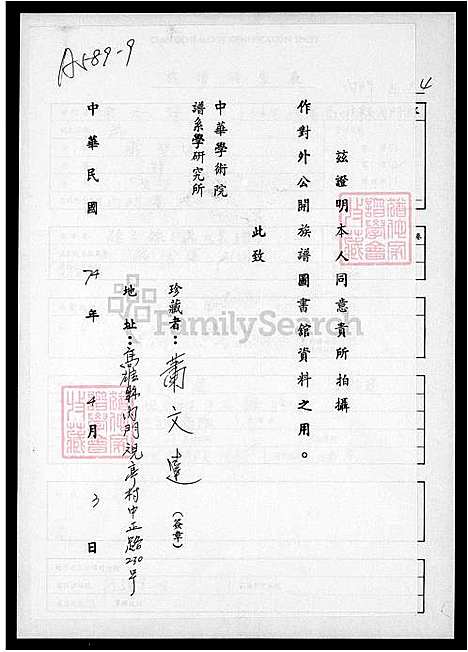 A589-9
4
茲證明本人同意貴所拍攝
作對外公開族譜圖書館資料之用。
此致
中華學術院
譜系學研究所
珍藏者：蕭文達（簽章）
地址：高雄縣內門視亭村中正路230号
中華民國74年4月3日
FamilySearch
譜學會
收藏
譜學會
收藏